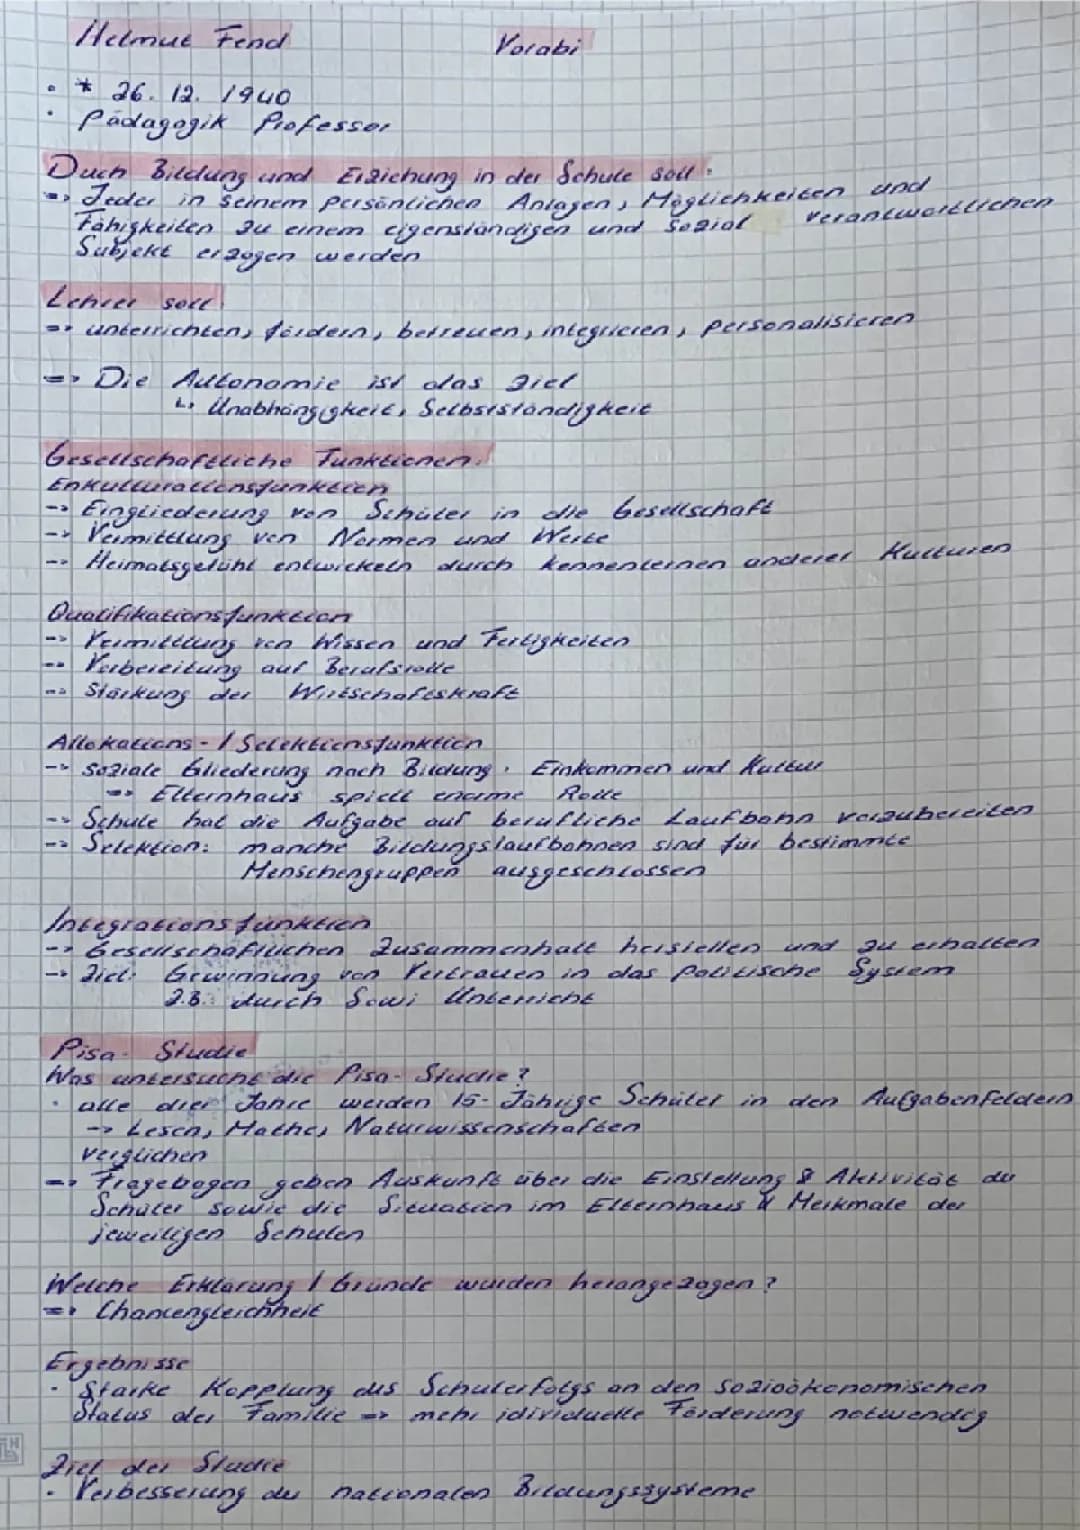 Helmut Fend Vorabi
• * 26. 12. 1940
• Pädagogik Professor
Duch Bildung und Erziehung in der Schule soll:
=> Jeder in seinem persönlichen Anlagen, Möglichkeiten und
Fähigkeiten zu einem eigenständigen und sozial verantwortlichen
Subjekt erzogen werden
Lehrer soll:
=> unterrichten, fördern, betreuen, integrieren, personalisieren
=> Die Autonomie ist das Ziel
↳ Unabhängigkeit, Selbstständigkeit
Gesellschaftliche Funktionen:
Enkulturationsfunktion
-> Eingliederung von Schüler in die Gesellschaft
-> Vermittlung von Normen und Werte
-> Heimatsgefühl entwickeln durch kennenlernen anderer Kulturen
Qualifikationsfunktion
-> Vermittlung von Wissen und Fertigkeiten
-> Vorbereitung auf Berufsrolle
-> Stärkung der Wirtschaftskraft
Allokations- / Selektionsfunktion
-> soziale Gliederung nach Bildung, Einkommen und Kultur
=> Elternhaus spielt enorme Rolle
-> Schule hat die Aufgabe auf berufliche Laufbahn vorzubereiten
-> Selektion: manche Bildungslaufbahnen sind für bestimmte
Menschengruppen ausgeschlossen
Integrationsfunktion
-> Gesellschaftlichen Zusammenhalt herstellen und zu erhalten
-> Ziel: Gewinnung von Vertrauen in das politische System
z.B. durch Sowi Unterricht
Pisa- Studie
Was untersucht die Pisa- Studie?
• alle drei Jahre werden 15- Jährige Schüler in den Aufgabenfeldern
-> Lesen, Mathe, Naturwissenschaften
verglichen
=> Fragebogen geben Auskunft über die Einstellung & Aktivität du
Schüler sowie die Situation im Elternhaus & Merkmale der
jeweiligen Schulen
Welche Erklärung / Gründe wurden herangezogen?
=> Chancengleichheit
Ergebnisse
• Starke Kopplung des Schulerfolgs an den sozioökonomischen
Status der Familie => mehr idividuelle Förderung notwendig
Ziel der Studie
• Verbesserung du nationalen Bildungssysteme